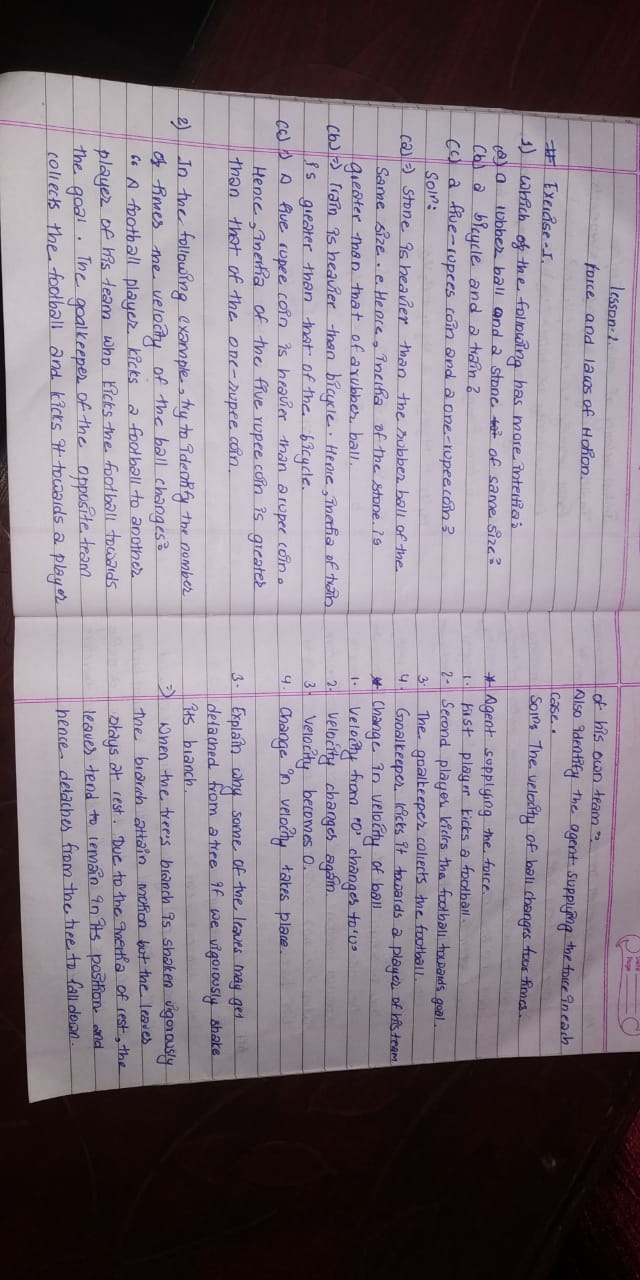 Lesson-2.
Force and laws of Motion
# Exercise-I.
1) Which of the following has more inertia:
(a) a rubber ball and a stone of same size?
(b) a bicycle and a train?
(c) a five-rupees coin and a one-rupee coin?
Soln:
(a) ⇒ Stone is heavier than the rubber ball of the
same size. Hence, inertia of the stone is
greater than that of a rubber ball.
(b) ⇒ Train is heavier than bicycle. Hence, inertia of train
is greater than that of the bicycle.
(c) ⇒ A five rupee coin is heavier than a rupee coin.
Hence, inertia of the five rupee coin is greater
than that of the one-rupee coin.
2) In the following example, try to identify the number
of times the velocity of the ball changes?
" A football player kicks a football to another
player of his team who kicks the football towards
the goal. The goalkeeper of the opposite team
collects the football and kicks it towards a player
Date
Page
of his own team".
Also identify the agent supplying the force in each
case.
Soln: The velocity of ball changes four times.
* Agent supplying the force.
1. First player kicks a football.
2- Second player kicks the football towards goal.
3. The goalkeeper collects the football.
4. Goalkeeper kicks it towards a player of his team
* Change in velocity of ball
1. Velocity from 'o' changes to 'u'
2. Velocity changes again.
3. Velocity becomes 0.
4. Change in velocity takes place.
3- Explain why some of the leaves may get
detached from a tree if we vigorously shake
its branch.
⇒ When the trees branch is shaken vigorously
the branch attain motion but the leaves
stays at rest. Due to the inertia of rest, the
leaves tend to remain in its position and
hence detaches from the tree to fall down.